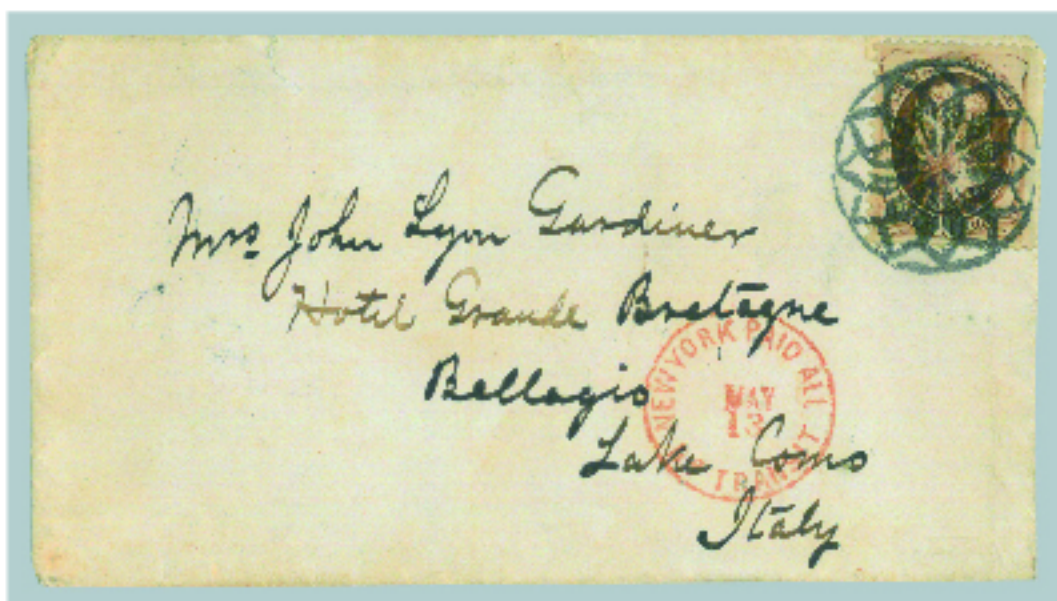 Mrs John Lyon Gardiner
Hotel Grande Bretagne
Bellagio
Lake Como
Italy
NEW YORK PAID ALL
MAY
13
TRANSIT